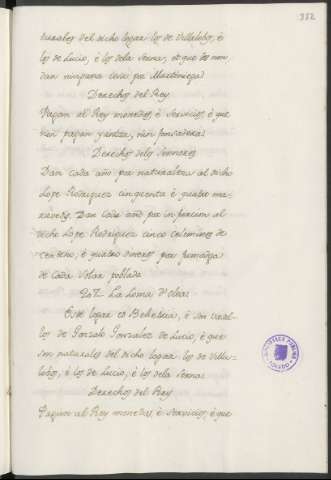 332
turales del dicho logar los de Villalobos, é
los de Lucio, é los dela Serna, et que los non
dan ninguna cosa por Martiniega.
Derechos del Rey
Pagan al Rey monedas é Servicios, é que
non pagan yantar, nin fonsadera.
Derechos delos Sennores
Dan cada año por naturaleza al dicho
Lope Rodriguez cinquenta é quatro ma-
ravedis. Dan cada año por infurcion al
dicho Lope Rodriguez cinco celemines de
centeno, é quatro dineros por
de cada Solar poblado
La Loma
Este logar es Behetria, é son vasa-
llos de Gonzalo Gonzalez de Lucio, é que
son naturales del dicho logar los de Villa-
lobos, é los de Lucio, é los dela Serna.
Derechos del Rey
Pagan al Rey monedas, é Servicios, é que
BIBLIOTECA PUBLICA
TOLEDO